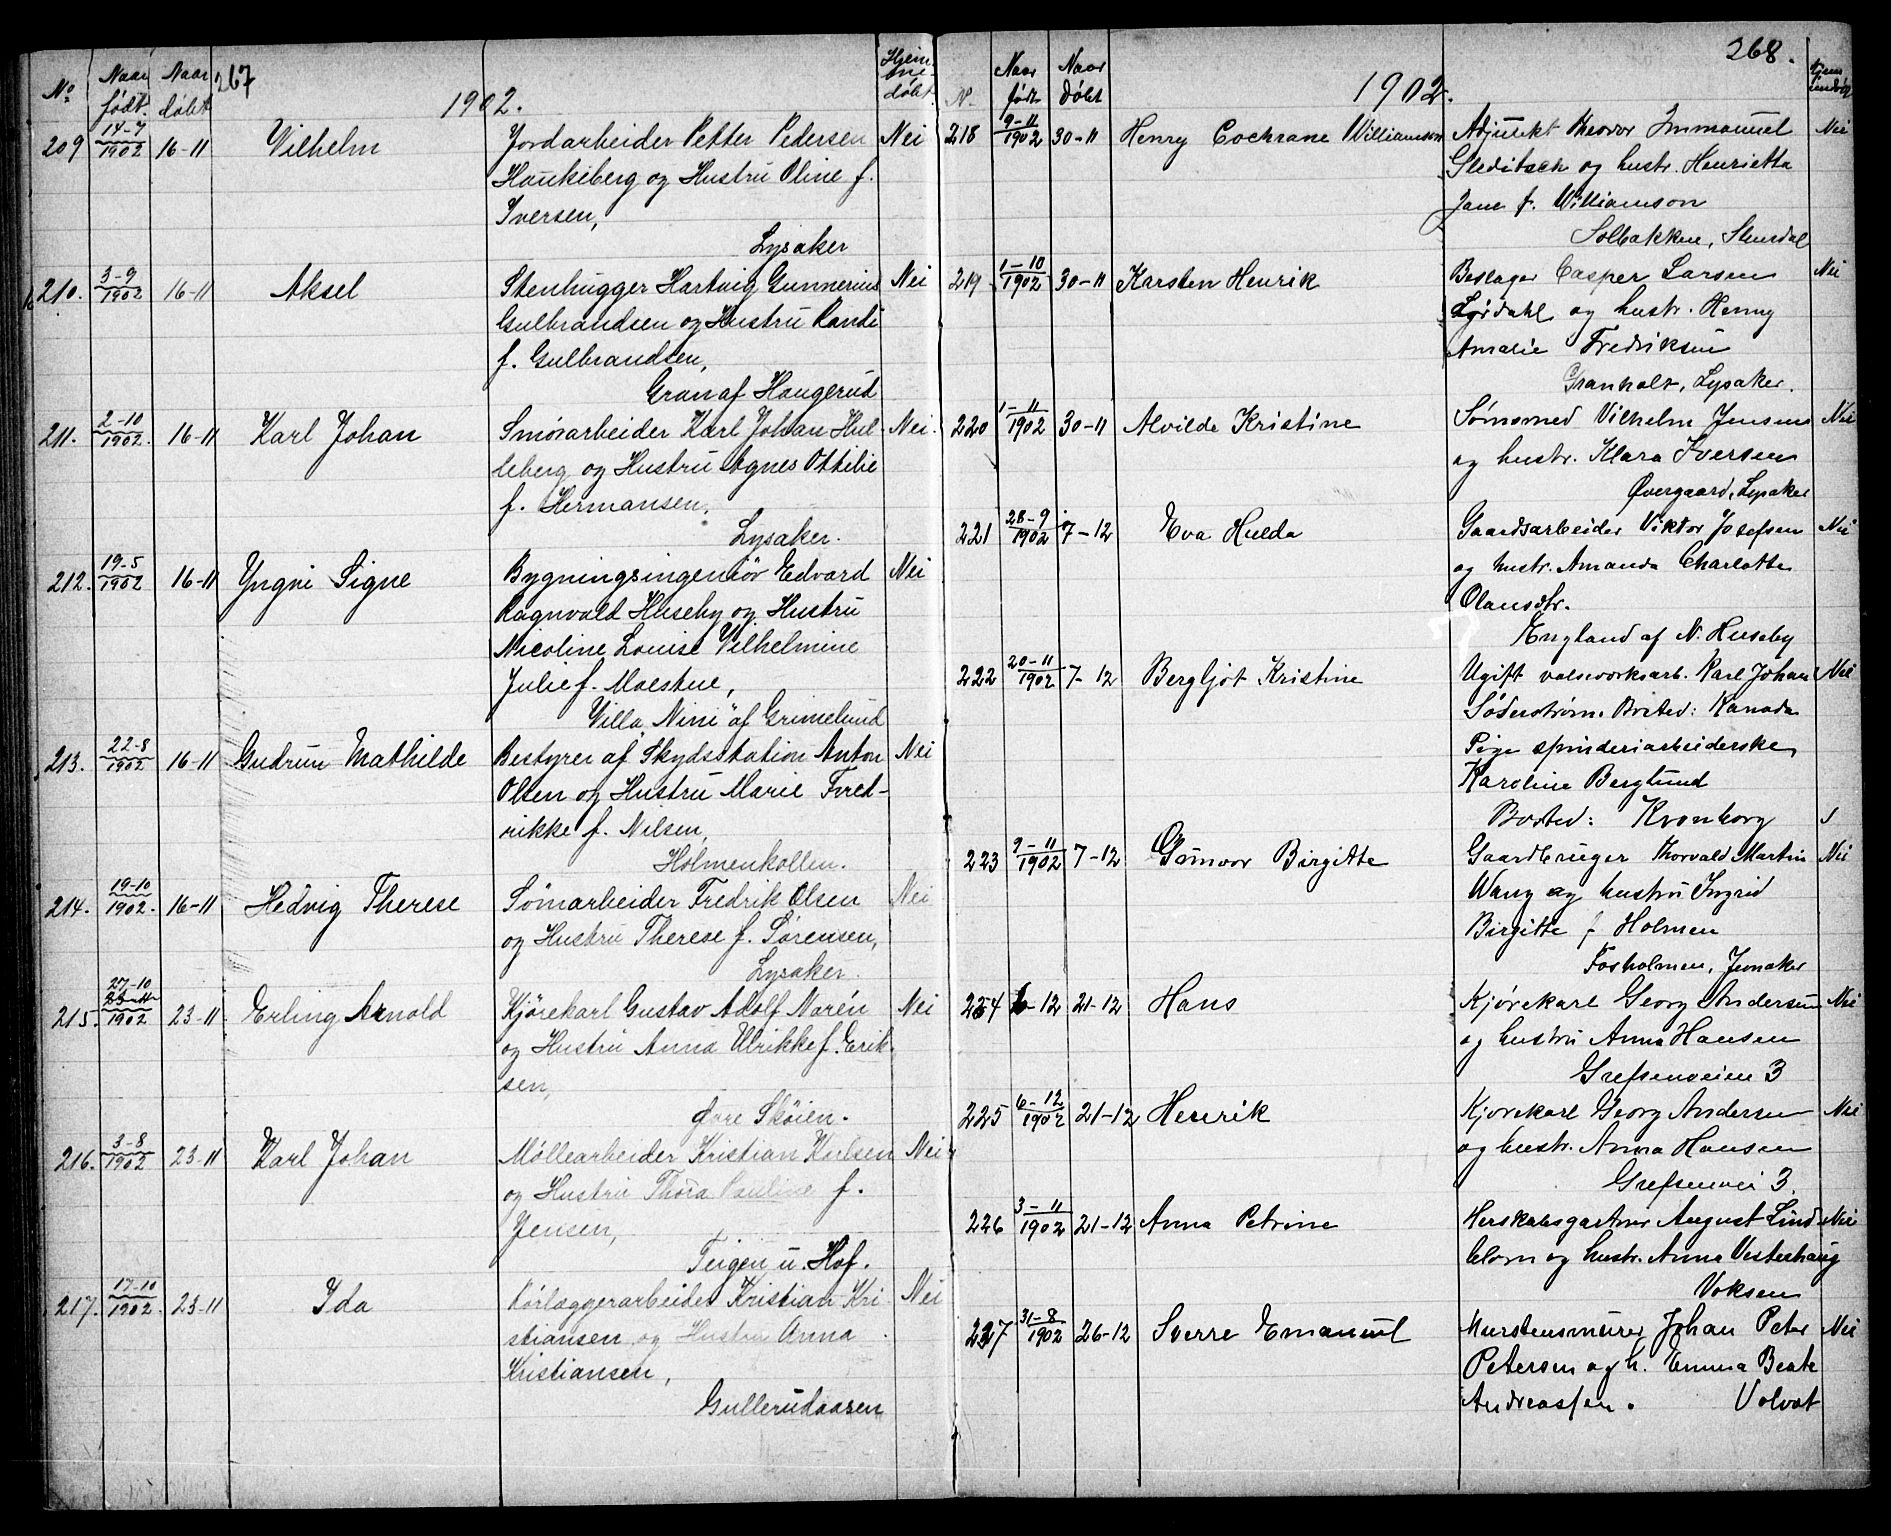 267
No Naar født. Naar døbt 1902. Hjemmedøbt
209 14-7 1902 16-11 Vilhelm Jordarbeider Petter Pedersen Nei
Haukeberg og Hustru Oline f.
Iversen,
Lysaker
210. 3-9 1902 16-11 Aksel Stenhugger Hartvig Gunnerius Nei
Gulbrandsen og Hustru Randi
f. Gulbrandsen,
Gran af Haugerud
211. 2-10 1902. 16-11 Karl Johan Smørarbeider Karl Johan Hul- Nei.
leberg og Hustru Agnes Ottilie
f. Hermansen,
Lysaker.
212. 19-5 1902 16-11 Yngvi Signe Bygningsingeniør Edvard Nei
Ragnvald Huseby og Hustru
Nicoline Louise Vilhelmine
Julie f. Moestue,
Villa „Nini" af Grimelund
213. 22-8 1902 16-11 Gudrun Mathilde Bestyrer af Skydsstation Anton Nei
Olsen og Hustru Marie Fred-
rikke f. Nilsen,
Holmenkollen.
214. 19-10 1902. 16-11 Hedvig Therese Sømarbeider Fredrik Olsen Nei
og Hustru Therese f. Sørensen,
Lysaker.
215. 27-10 1902 23-11 Erling Arnold Kjørekarl Gustav Adolf Norén Nei
og Hustru Anna Ulrikke f. Erik-
sen,
Øvre Skøien.
216. 3-8 1902 23-11 Karl Johan Møllearbeider Kristian Karlsen Nei
og Hustru Thora Pauline f.
Jensen,
Teigen u. Hof.
217. 17-10 1902. 23-11 Ida Rørlæggerarbeider Kristian Kri- Nei
stiansen og Hustru Anna
Kristiansen,
Gullerudaasen
268.
N. Naar født Naar døbt 1902.
218 9-11 1902 30-11 Henry Cochrane Williamson Adjunkt Theodor Immanuel Nei
Gleditsch og hustr. Henrietta
Jane f. Williamson
Solbakken, Slemdal
219 1-10 1902 30-11 Karsten Henrik Beslager Casper Larsen Nei
Lørdahl og hustr. Henny
Amalie Fredriksen
Granholt, Lysaker.
220 1-11 1902 30-11 Alvilde Kristine Sømsmed Vilhelm Jensen Nei
og hustr. Klara Iversen
Øvergaard, Lysaker
221 28-9 1902 7-12 Eva Hulda Gaardsarbeider Viktor Josefsen Nei
og hustr. Amanda Charlotte
Olausdtr.
England af N. Huseby
222 20-11 1902 7-12 Bergljot Kristine Ugift valseverksarb. Karl Johan Nei
Søderstrøm. Bosted: Kanada
Pige spinderiarbeiderske
Karoline Berglund
Bosted: Kronborg
223 9-11 1902 7-12 Gunvor Birgitte Gaardbruger Thorvald Martin Nei
Wang og hustru Ingrid
Birgitte f Holmen
Fosholmen, Jevnaker
224 6-12 21-12 Hans Kjørekarl Georg Andersen Nei
og hustru Anna Hansen
Grefsenveien 3
225 6-12 1902 21-12 Henrik Kjørekarl Georg Andersen Nei
og hustr. Anna Hansen
Grefsenvei 3.
226 3-11 1902 21-12 Anna Petrine Herskabsgartner August Lind- Nei
blom og hustr. Anna Vesterhaug
Voksen
227 31-8 1902 26-12 Sverre Emanuel Murstensmurer Johan Peter Nei
Petersen og h. Emma Beate
Andreassen. Volvat